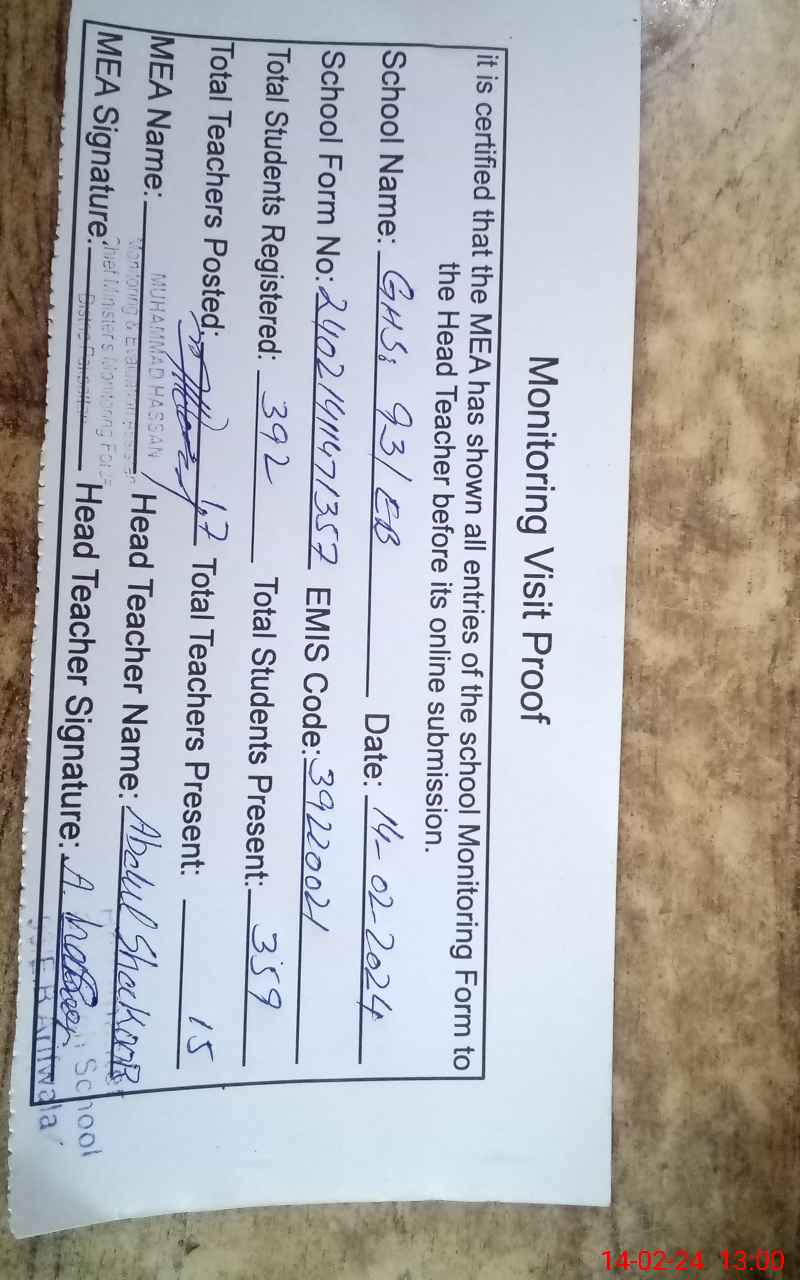 Monitoring Visit Proof
it is certified that the MEA has shown all entries of the school Monitoring Form to
the Head Teacher before its online submission.
School Name: GHS: 93/EB Date: 14-02-2024
School Form No: EMIS Code: 39220021
Total Students Registered: 392 Total Students Present: 359
Total Teachers Posted: 17 Total Teachers Present: 15
MEA Name: MUHAMMAD HASSAN Head Teacher Name: Abdul
Monitoring & Evaluation
MEA Signature: Head Teacher Signature:
Chief Minister's Monitoring Force
School
14-02-24 13:00